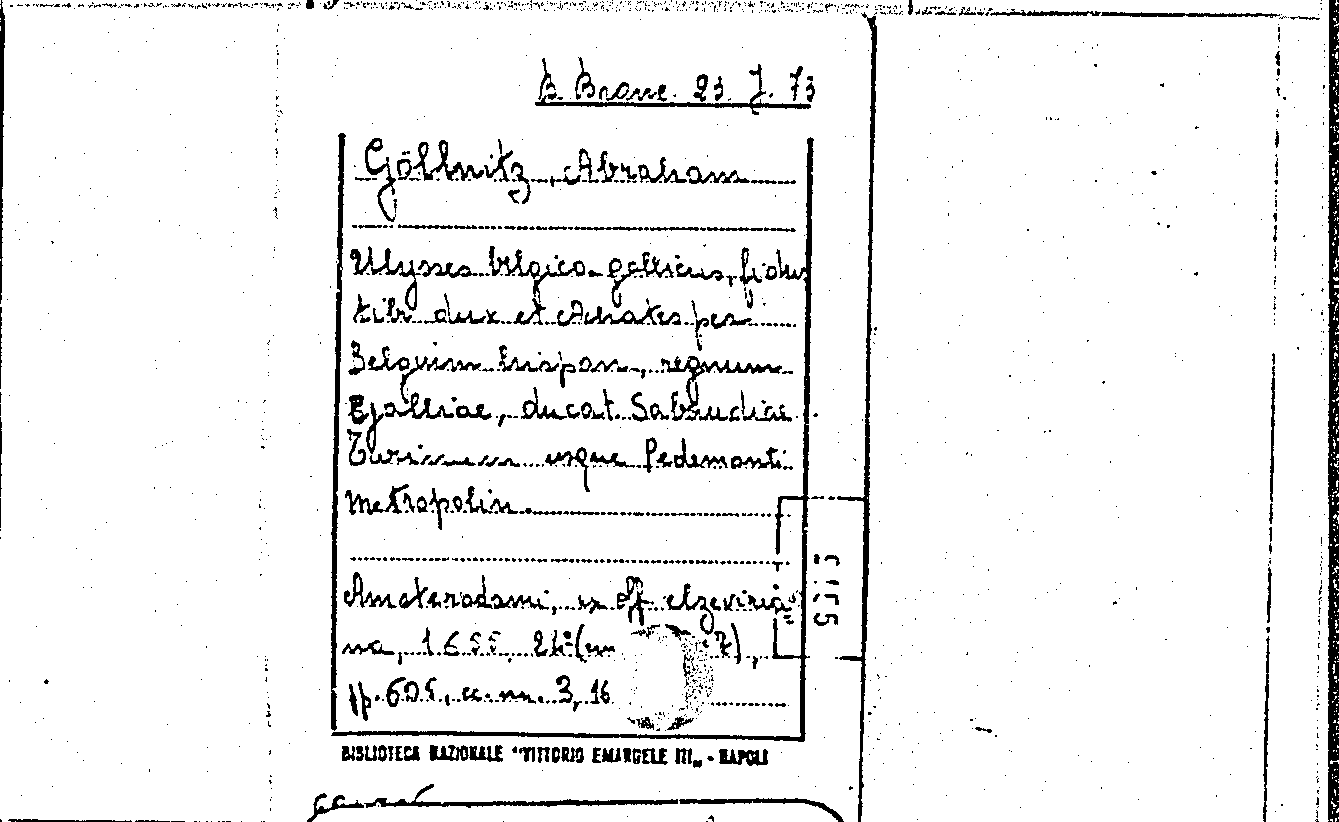 B. Branc. 23 J. 73
Göllnitz, Abraham
Ulysses belgico-gallicus, fidus
tibi dux et Achates per
Belgium hispan., regnum
Galliae, ducat. Sabaudiae
Turinum usque Pedemonti
metropolin.
Amsterodami, ex off. elzeviria
na, 1655, 24°(cm 7),
pp. 605, cc. nn. 3, 16
BIBLIOTECA NAZIONALE "VITTORIO EMANUELE III„ - NAPOLI